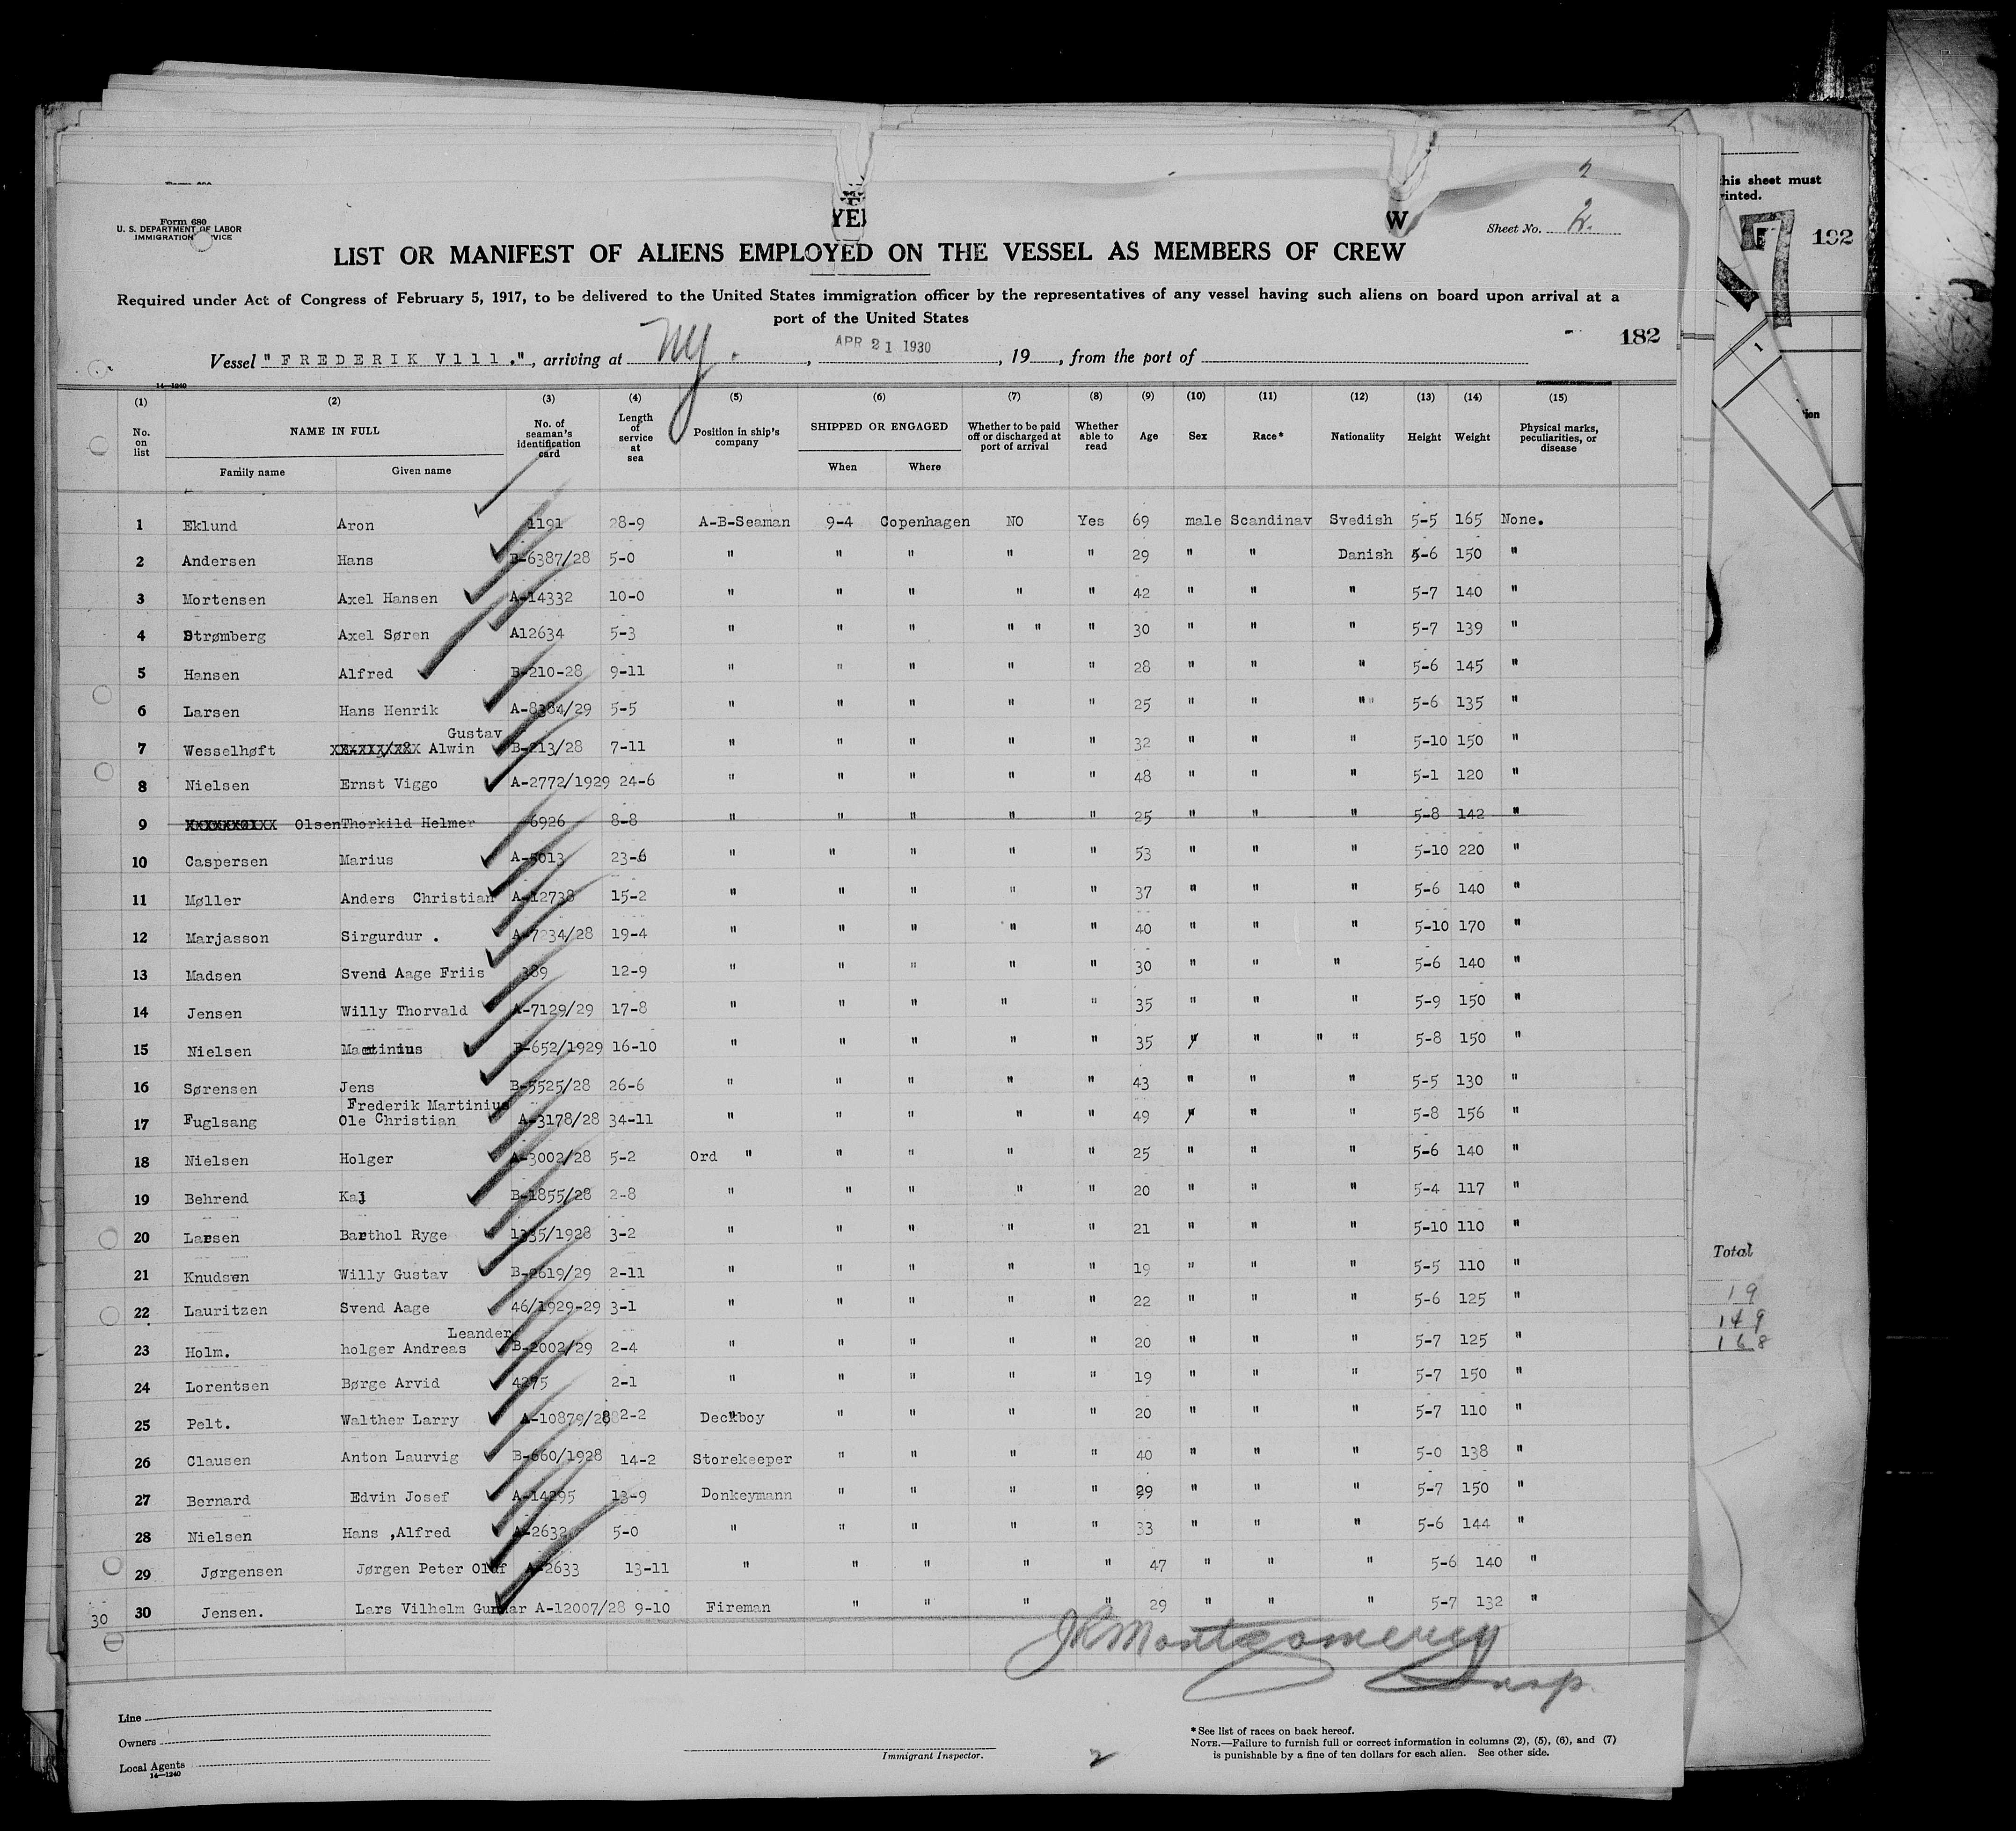 2
this sheet must
rinted.
Form 680
U. S. DEPARTMENT OF LABOR
IMMIGRATION SERVICE
YE
W
Sheet No. 2.
192
LIST OR MANIFEST OF ALIENS EMPLOYED ON THE VESSEL AS MEMBERS OF CREW
Required under Act of Congress of February 5, 1917, to be delivered to the United States immigration officer by the representatives of any vessel having such aliens on board upon arrival at a
port of the United States
182
Vessel " FREDERIK V111.", arriving at NY. , APR 21 1930 , 19 , from the port of
14—1240
(1) (2) (3) (4) (5) (6) (7) (8) (9) (10) (11) (12) (13) (14) (15)
No. on list NAME IN FULL No. of seaman's identification card Length of service at sea Position in ship's company SHIPPED OR ENGAGED Whether to be paid off or discharged at port of arrival Whether able to read Age Sex Race* Nationality Height Weight Physical marks, peculiarities, or disease
Family name Given name When Where
1 Eklund Aron 1191 28-9 A-B-Seaman 9-4 Copenhagen NO Yes 69 male Scandinav Svedish 5-5 165 None.
2 Andersen Hans B-6387/28 5-0 " " " " " 29 " " Danish 5-6 150 "
3 Mortensen Axel Hansen A-14332 10-0 " " " " " 42 " " " 5-7 140 "
4 Strømberg Axel Søren A12634 5-3 " " " " " " 30 " " " 5-7 139 "
5 Hansen Alfred B-210-28 9-11 " " " " " 28 " " " 5-6 145 "
6 Larsen Hans Henrik A-8384/29 5-5 " " " " " 25 " " " " 5-6 135 "
Gustav
7 Wesselhøft Alwin B-213/28 7-11 " " " " " 32 " " " 5-10 150 "
8 Nielsen Ernst Viggo A-2772/1929 24-6 " " " " " 48 " " " 5-1 120 "
9 Olsen Thorkild Helmer 6926 8-8 " " " " " 25 " " " 5-8 142 "
10 Caspersen Marius A-5013 23-6 " " " " " 53 " " " 5-10 220 "
11 Møller Anders Christian A-12738 15-2 " " " " " 37 " " " 5-6 140 "
12 Marjasson Sirgurdur . A-7234/28 19-4 " " " " " 40 " " " 5-10 170 "
13 Madsen Svend Aage Friis 389 12-9 " " " " " 30 " " " 5-6 140 "
14 Jensen Willy Thorvald A-7129/29 17-8 " " " " " 35 " " " 5-9 150 "
15 Nielsen Martinius B-652/1929 16-10 " " " " " 35 " " " " 5-8 150 "
16 Sørensen Jens B-5525/28 26-6 " " " " " 43 " " " 5-5 130 "
Frederik Martinius
17 Fuglsang Ole Christian A-3178/28 34-11 " " " " " 49 " " " 5-8 156 "
18 Nielsen Holger A-3002/28 5-2 Ord " " " " " 25 " " " 5-6 140 "
19 Behrend Kaj B-1855/28 2-8 " " " " " 20 " " " 5-4 117 "
20 Larsen Barthol Ryge 1335/1928 3-2 " " " " " 21 " " " 5-10 110 "
21 Knudsen Willy Gustav B-2619/29 2-11 " " " " " 19 " " " 5-5 110 "
22 Lauritzen Svend Aage 46/1929-29 3-1 " " " " " 22 " " " 5-6 125 "
Leander
23 Holm. holger Andreas B-2002/29 2-4 " " " " " 20 " " " 5-7 125 "
24 Lorentsen Børge Arvid 4275 2-1 " " " " " 19 " " " 5-7 150 "
25 Pelt. Walther Larry A-10879/28 2-2 Deckboy " " " " 20 " " " 5-7 110 "
26 Clausen Anton Laurvig B-660/1928 14-2 Storekeeper " " " " 40 " " " 5-0 138 "
27 Bernard Edvin Josef A-14295 13-9 Donkeymann " " " " 29 " " " 5-7 150 "
28 Nielsen Hans ,Alfred A-2632 5-0 " " " " " 33 " " " 5-6 144 "
29 Jørgensen Jørgen Peter Olaf A-2633 13-11 " " " " " 47 " " " 5-6 140 "
30 30 Jensen. Lars Vilhelm Gunnar A-12007/28 9-10 Fireman " " " " 29 " " " 5-7 132 "
Total
19
149
168
JR Montgomery
Insp.
Line
Owners
Local Agents
14—1240
Immigrant Inspector.
2
*See list of races on back hereof.
NOTE.—Failure to furnish full or correct information in columns (2), (5), (6), and (7)
is punishable by a fine of ten dollars for each alien. See other side.